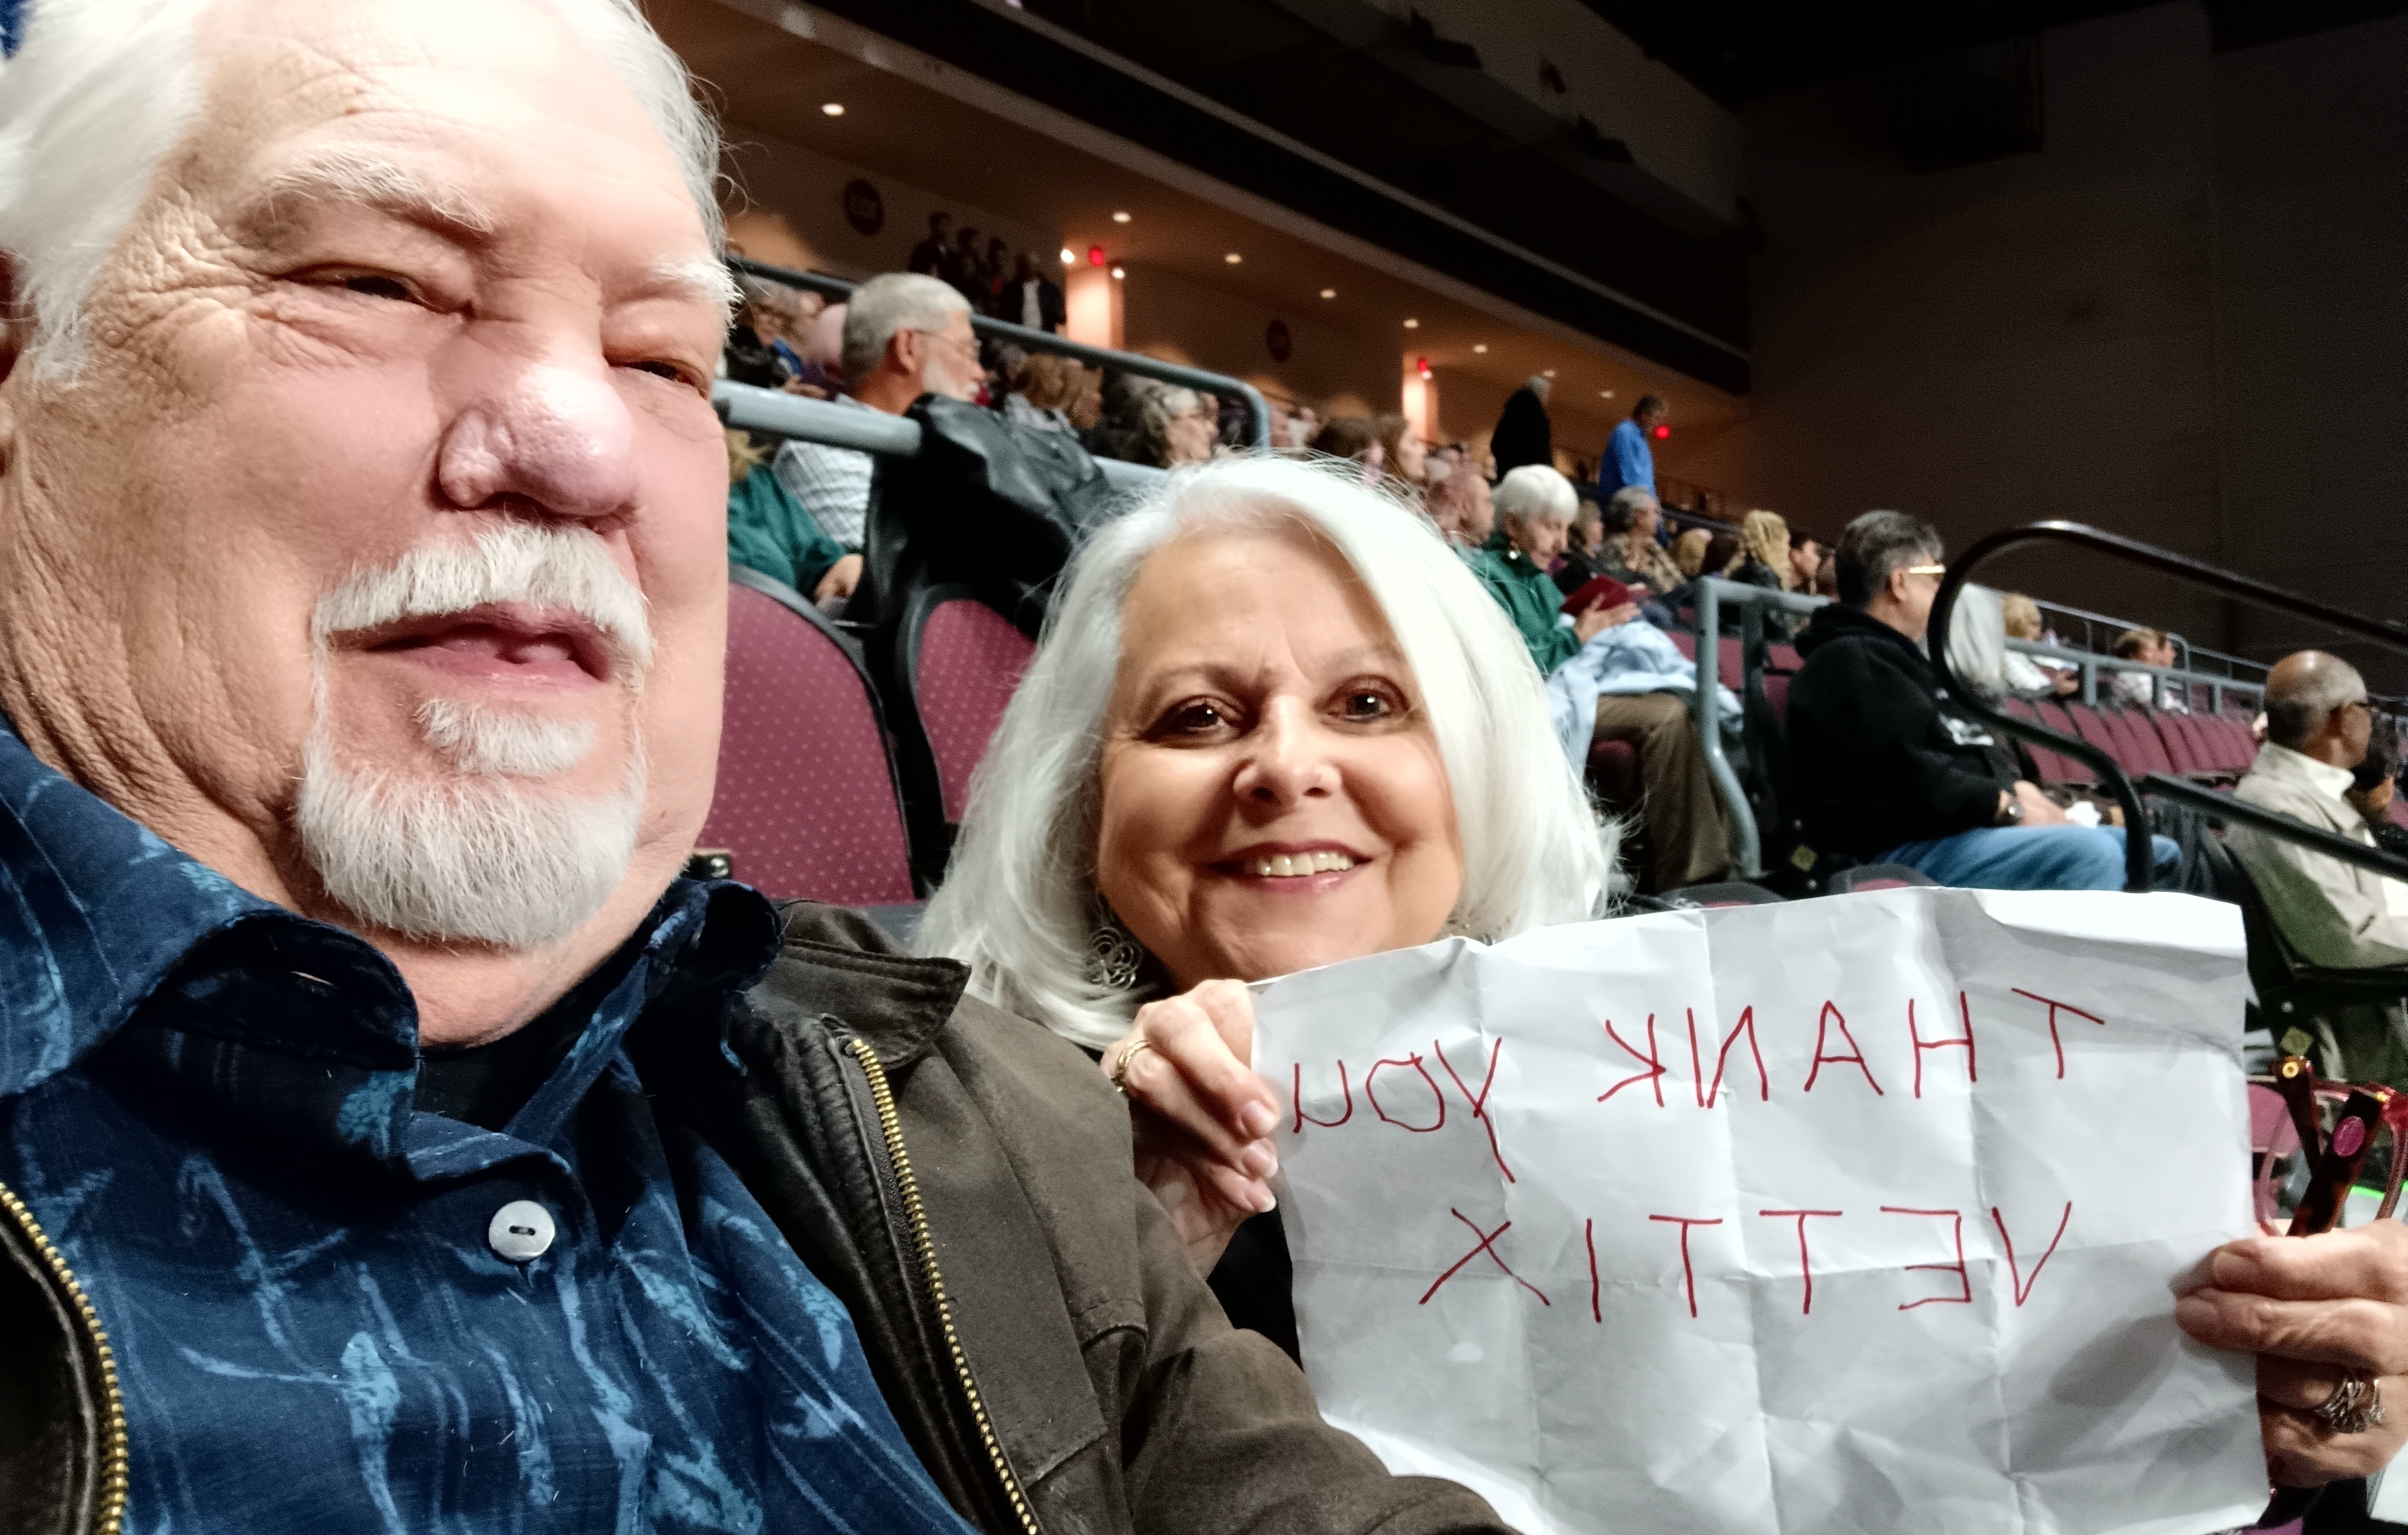 THANK YOU
VETTIX